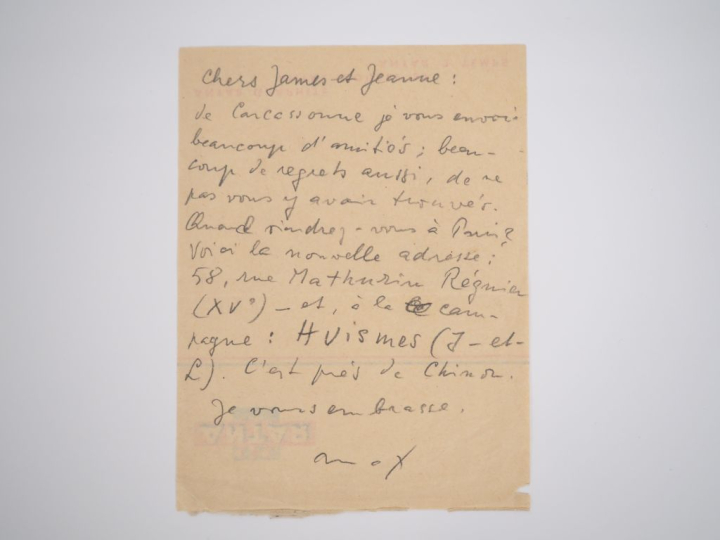 Chers James et Jeanne :
de Carcassonne je vous envoie
beaucoup d'amitiés ; beau-
coup de regrets aussi, de ne
pas vous y avoir trouvés.
Quand viendrez-vous à Paris ?
Voici la nouvelle adresse :
58, rue Mathurin Régnier
(XVe) – et, à la cam-
pagne : HUismes (I – et –
L). C'est près de Chinon.
Je vous embrasse.
max